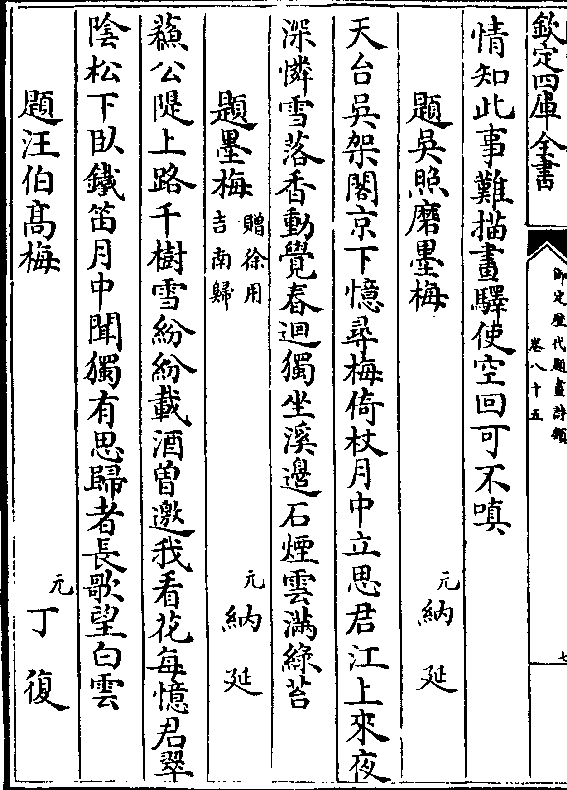 欽定四庫全書
御定歴代題畫詩類
卷八十五
七
情知此事難描畫驛使空回可不嗔
題吳照磨墨梅
元 納延
天台吳架閣京下憶尋梅倚杖月中立思君江上來夜
深憐雪落香動覺春迴獨坐溪邊石煙雲滿綠苔
題墨梅 贈徐用吉南歸
元 納延
蘓公隄上路千樹雪紛紛載酒曽邀我看花每憶君翠
陰松下臥鐵笛月中聞獨有思歸者長歌望白雲
題汪伯髙梅
元 丁復